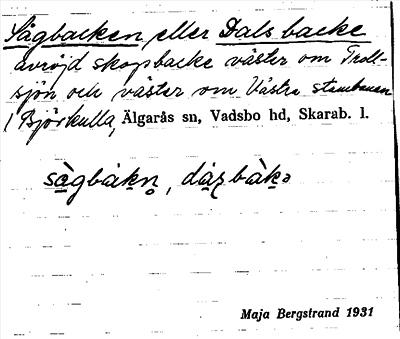 Sågbacken eller Dals backe
avröjd skogsbacke väster om Troll-
sjön och väster om Västra stambanan
/ Björkulla, Älgarås sn, Vadsbo hd, Skarab. l.
sàgbàkn̥, dàʐbàkə
Maja Bergstrand 1931